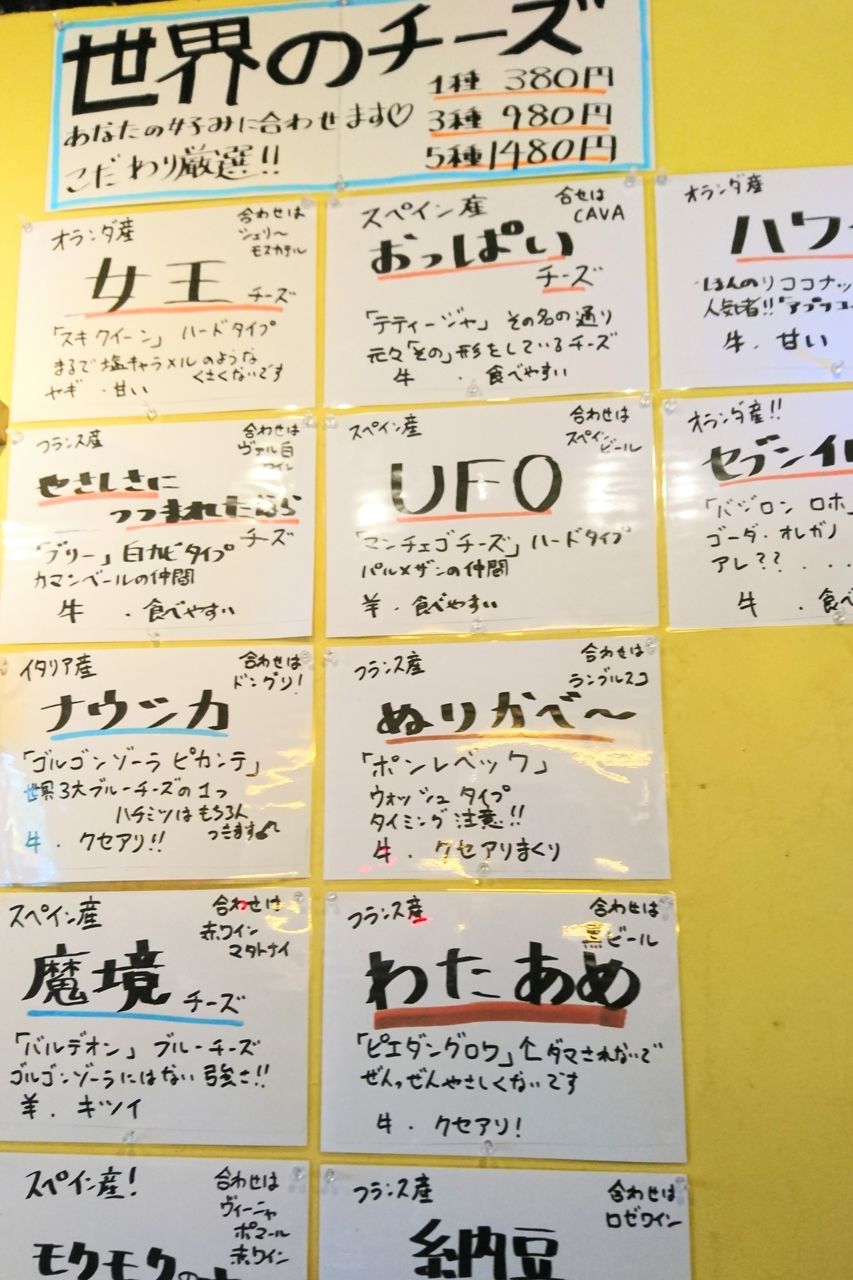 世界のチーズ
あなたの好みに合わせます♡
こだわり厳選!!
1種 380円
3種 980円
5種1480円
オランダ産
合わせは
シェリー
モスカテル
女王チーズ
「スキクイーン」 ハードタイプ
まるで塩キャラメルのような
くさくないです
ヤギ ・甘い
スペイン産
合せは
CAVA
おっぱい
チーズ
「テティージャ」 その名の通り
元々「その」形をしているチーズ
牛 ・食べやすい
オランダ産
ハワ
ほんのりココナッ
人気者!!
牛・甘い
フランス産
合わせは
ヴァル白
ワイン
やさしさに
つつまれたなら
チーズ
「ブリー」白カビタイプ
カマンベールの仲間
牛 ・食べやすい
スペイン産
合わせは
スペイン
ビール
UFO
「マンチェゴチーズ」ハードタイプ
パルメザンの仲間
羊・食べやすい
オランダ産!!
セブンイレ
「バジロン ロホ」
ゴーダ・オレガノ
アレ??・・・
牛 ・食べ
イタリア産
合わせは
ドングリ!
ナウシカ
「ゴルゴンゾーラ ピカンテ」
世界3大ブルーチーズの1つ
ハチミツはもちろん
つきます
牛・クセアリ!!
フランス産
合わせは
ランブルスコ
ぬりかべ〜
「ポンレベック」
ウォッシュタイプ
タイミング注意!!
牛・クセアリまくり
スペイン産
合わせは
赤ワイン
マタトナイ
魔境チーズ
「バルデオン」ブルーチーズ
ゴルゴンゾーラにはない強さ!!
羊・キツイ
フランス産
合わせは
黒ビール
わたあめ
「ピエダングロワ」↑ダマされないで
ぜんっぜんやさしくないです
牛・クセアリ!
スペイン産!
合わせは
ヴィーニャ
ポマール
赤ワイン
モクモクの
フランス産
合わせは
ロゼワイン
納豆